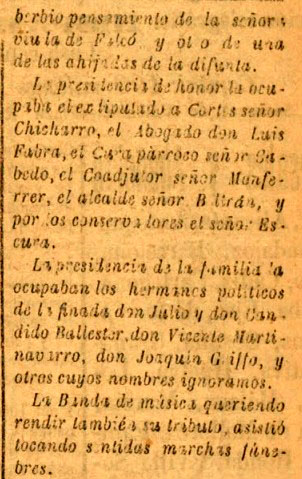 berbio pensamiento de la señora
viuda de Falcó y otro de una
de las ahijadas de la difunta.
La presidencia de honor la ocu-
paba el ex diputado a Cortes señor
Chicharro, el Abogado don Luis
Fabra, el Cura párroco señor Ca-
bedo, el Coadjutor señor Monfe-
rrer, el alcalde señor Beltrán, y
por los conservadores el señor Es-
cura.
La presidencia de la familia la
ocupaban los hermanos políticos
de la finada don Julio y don Can-
dido Ballester, don Vicente Marti-
navarro, don Joaquín Gaffo, y
otros cuyos nombres ignoramos.
La Banda de música queriendo
rendir también su tributo, asistió
tocando sentidas marchas fúne-
bres.